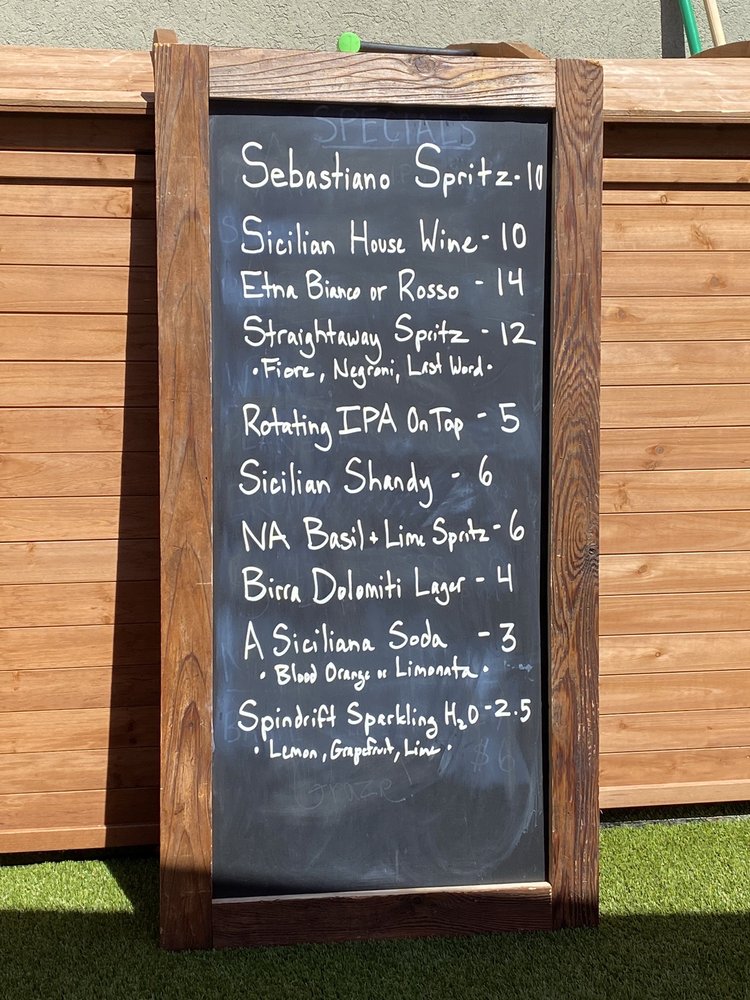 SPECIALS
Sebastiano Spritz - 10
Sicilian House Wine - 10
Etna Bianco or Rosso - 14
Straightaway Spritz - 12
• Fiore, Negroni, Last Word •
Rotating IPA On Tap - 5
Sicilian Shandy - 6
NA Basil + Lime Spritz - 6
Birra Dolomiti Lager - 4
A Siciliana Soda - 3
• Blood Orange or Limonata •
Spindrift Sparkling H2O - 2.5
• Lemon, Grapefruit, Lime •
$6